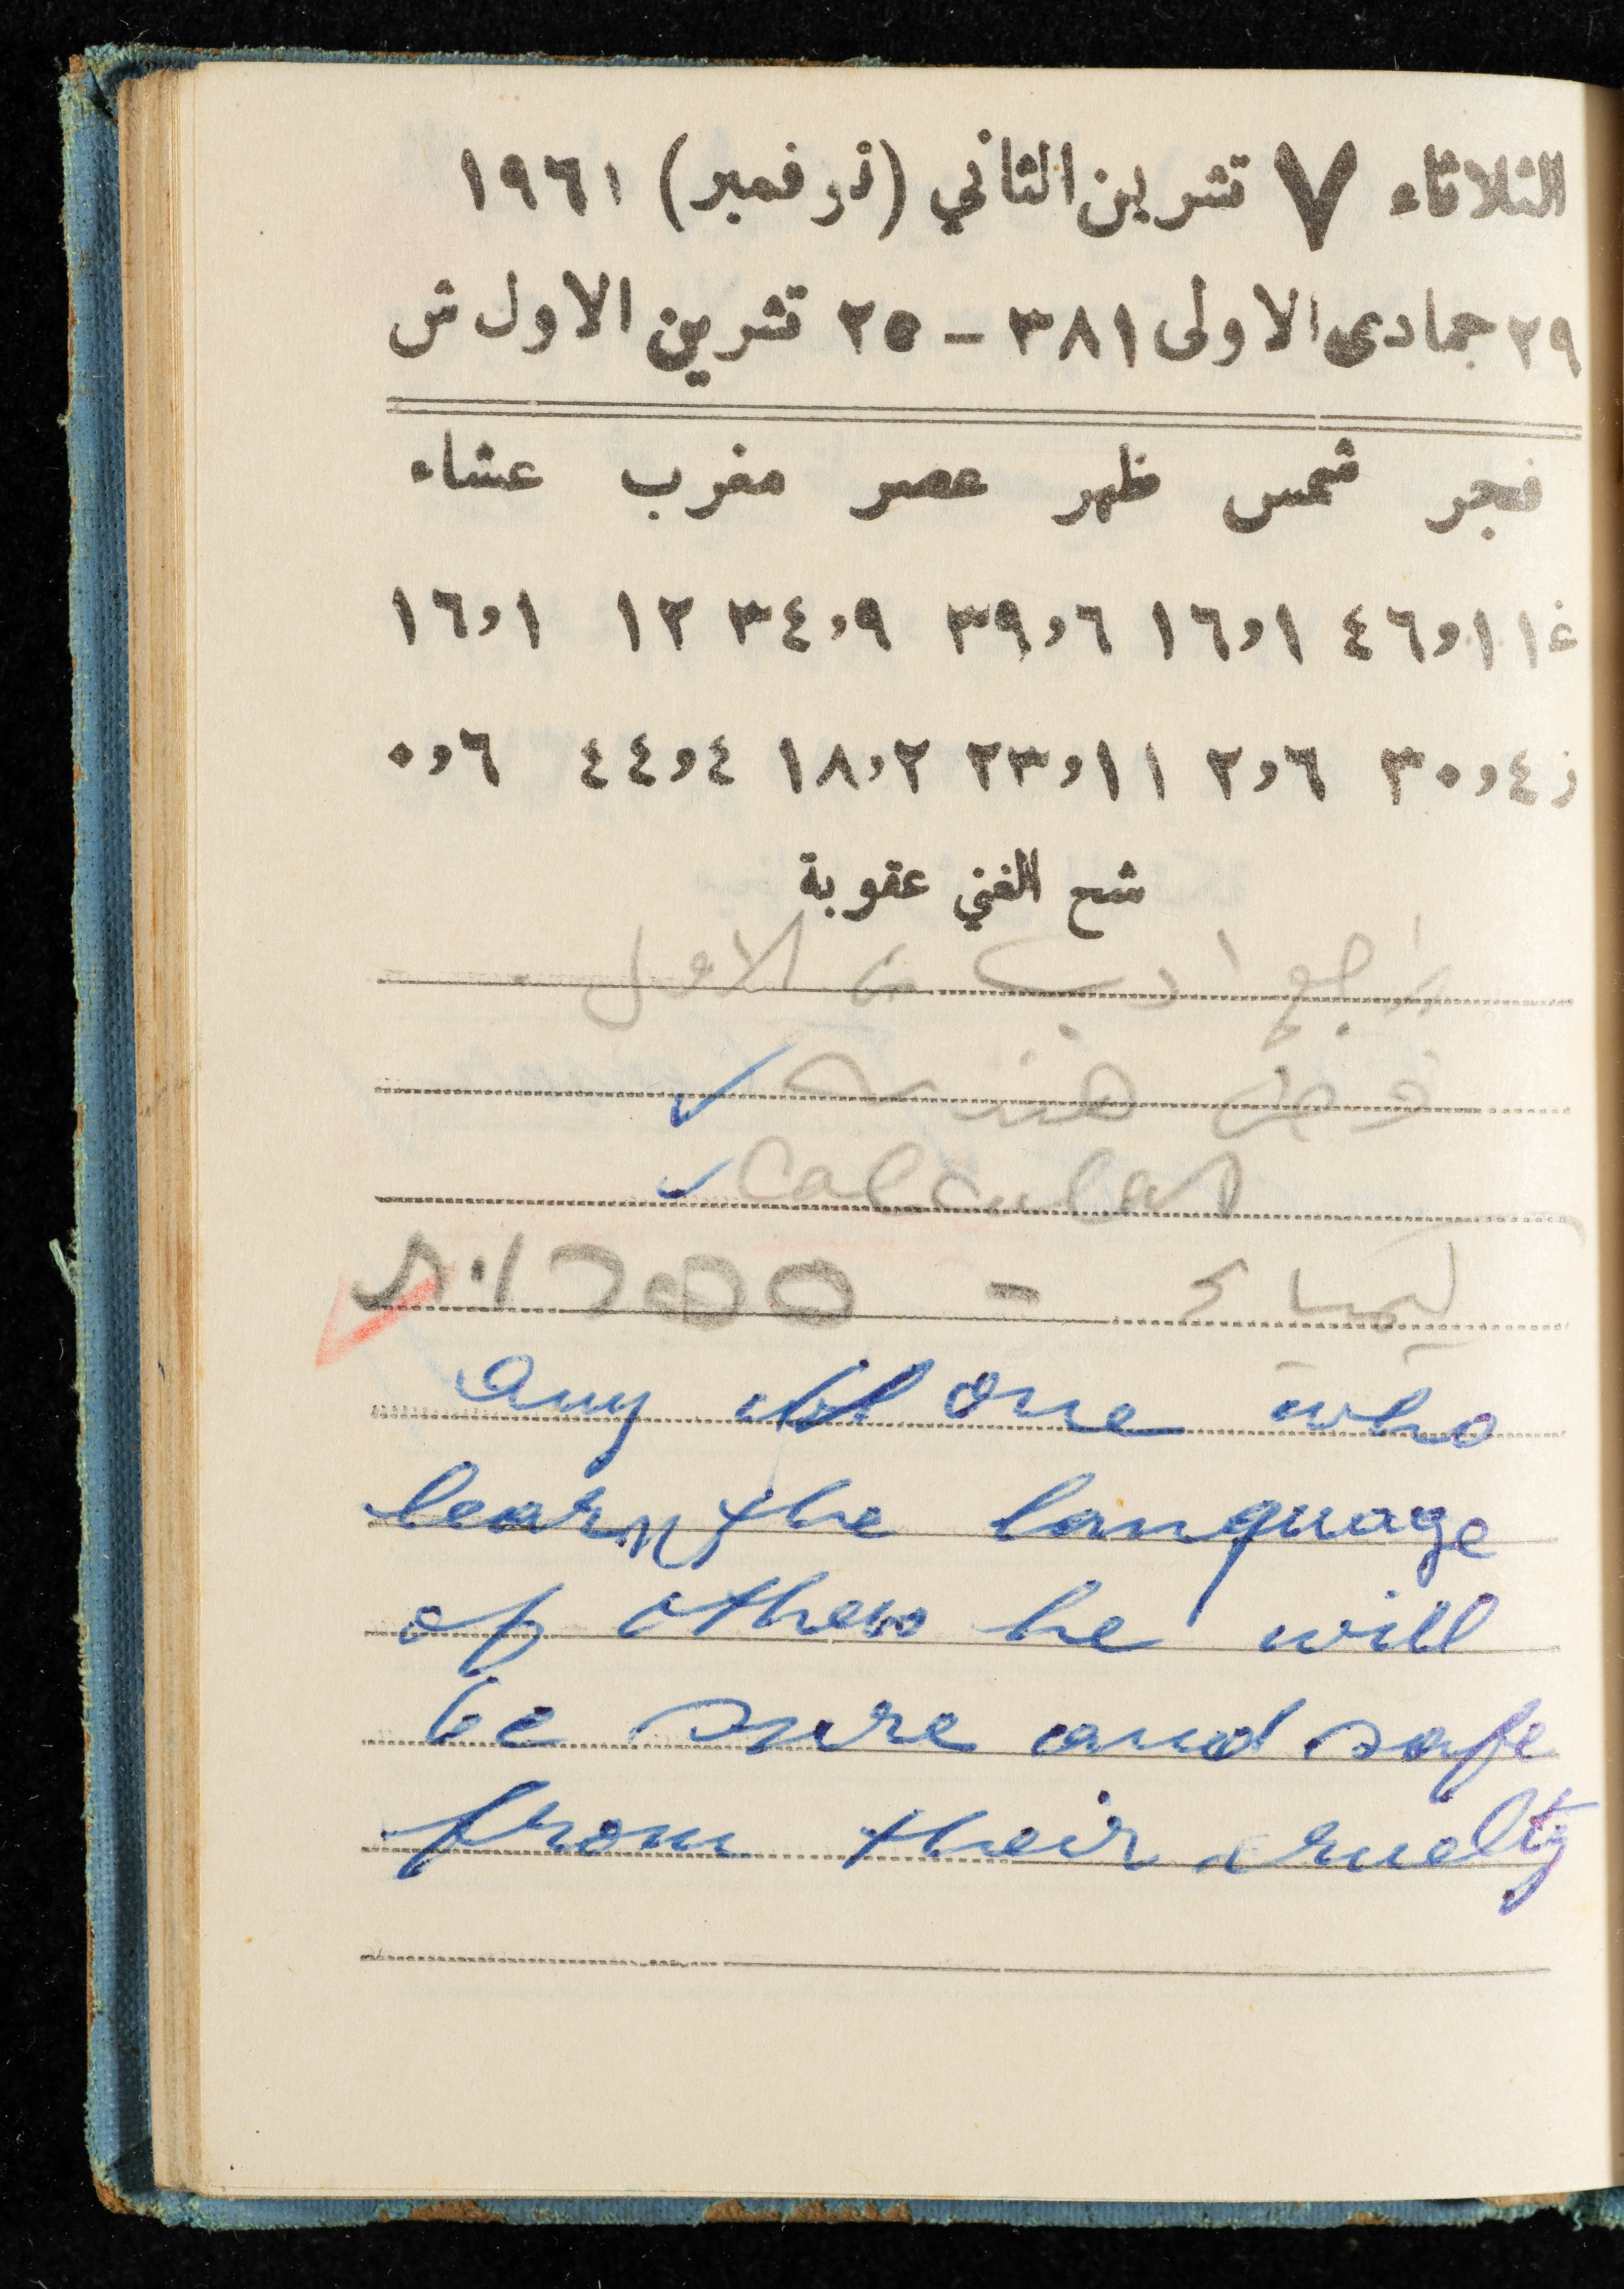 الثلاثاء ٧ تشرين الثاني (نوفمبر) ١٩٦١
٢٩ جمادى الاولى ٣٨١ – ٢٥ تشرين الاول ش
فجر شمس ظهر عصر مغرب عشاء
غ ١١و٤٦ ١و١٦ ٦و٣٩ ٩و٣٤ ١٢ ١و١٦
ز ٤و٣٠ ٦و٢ ١١و٢٣ ٢و١٨ ٤و٤٤ ٦و٠
شح الغني عقوبة
ادب من الاول
هندسة ✓
✓ calculas
كيمياء -
any one who
learn the language
of others he will
be sure and safe
from their cruelty